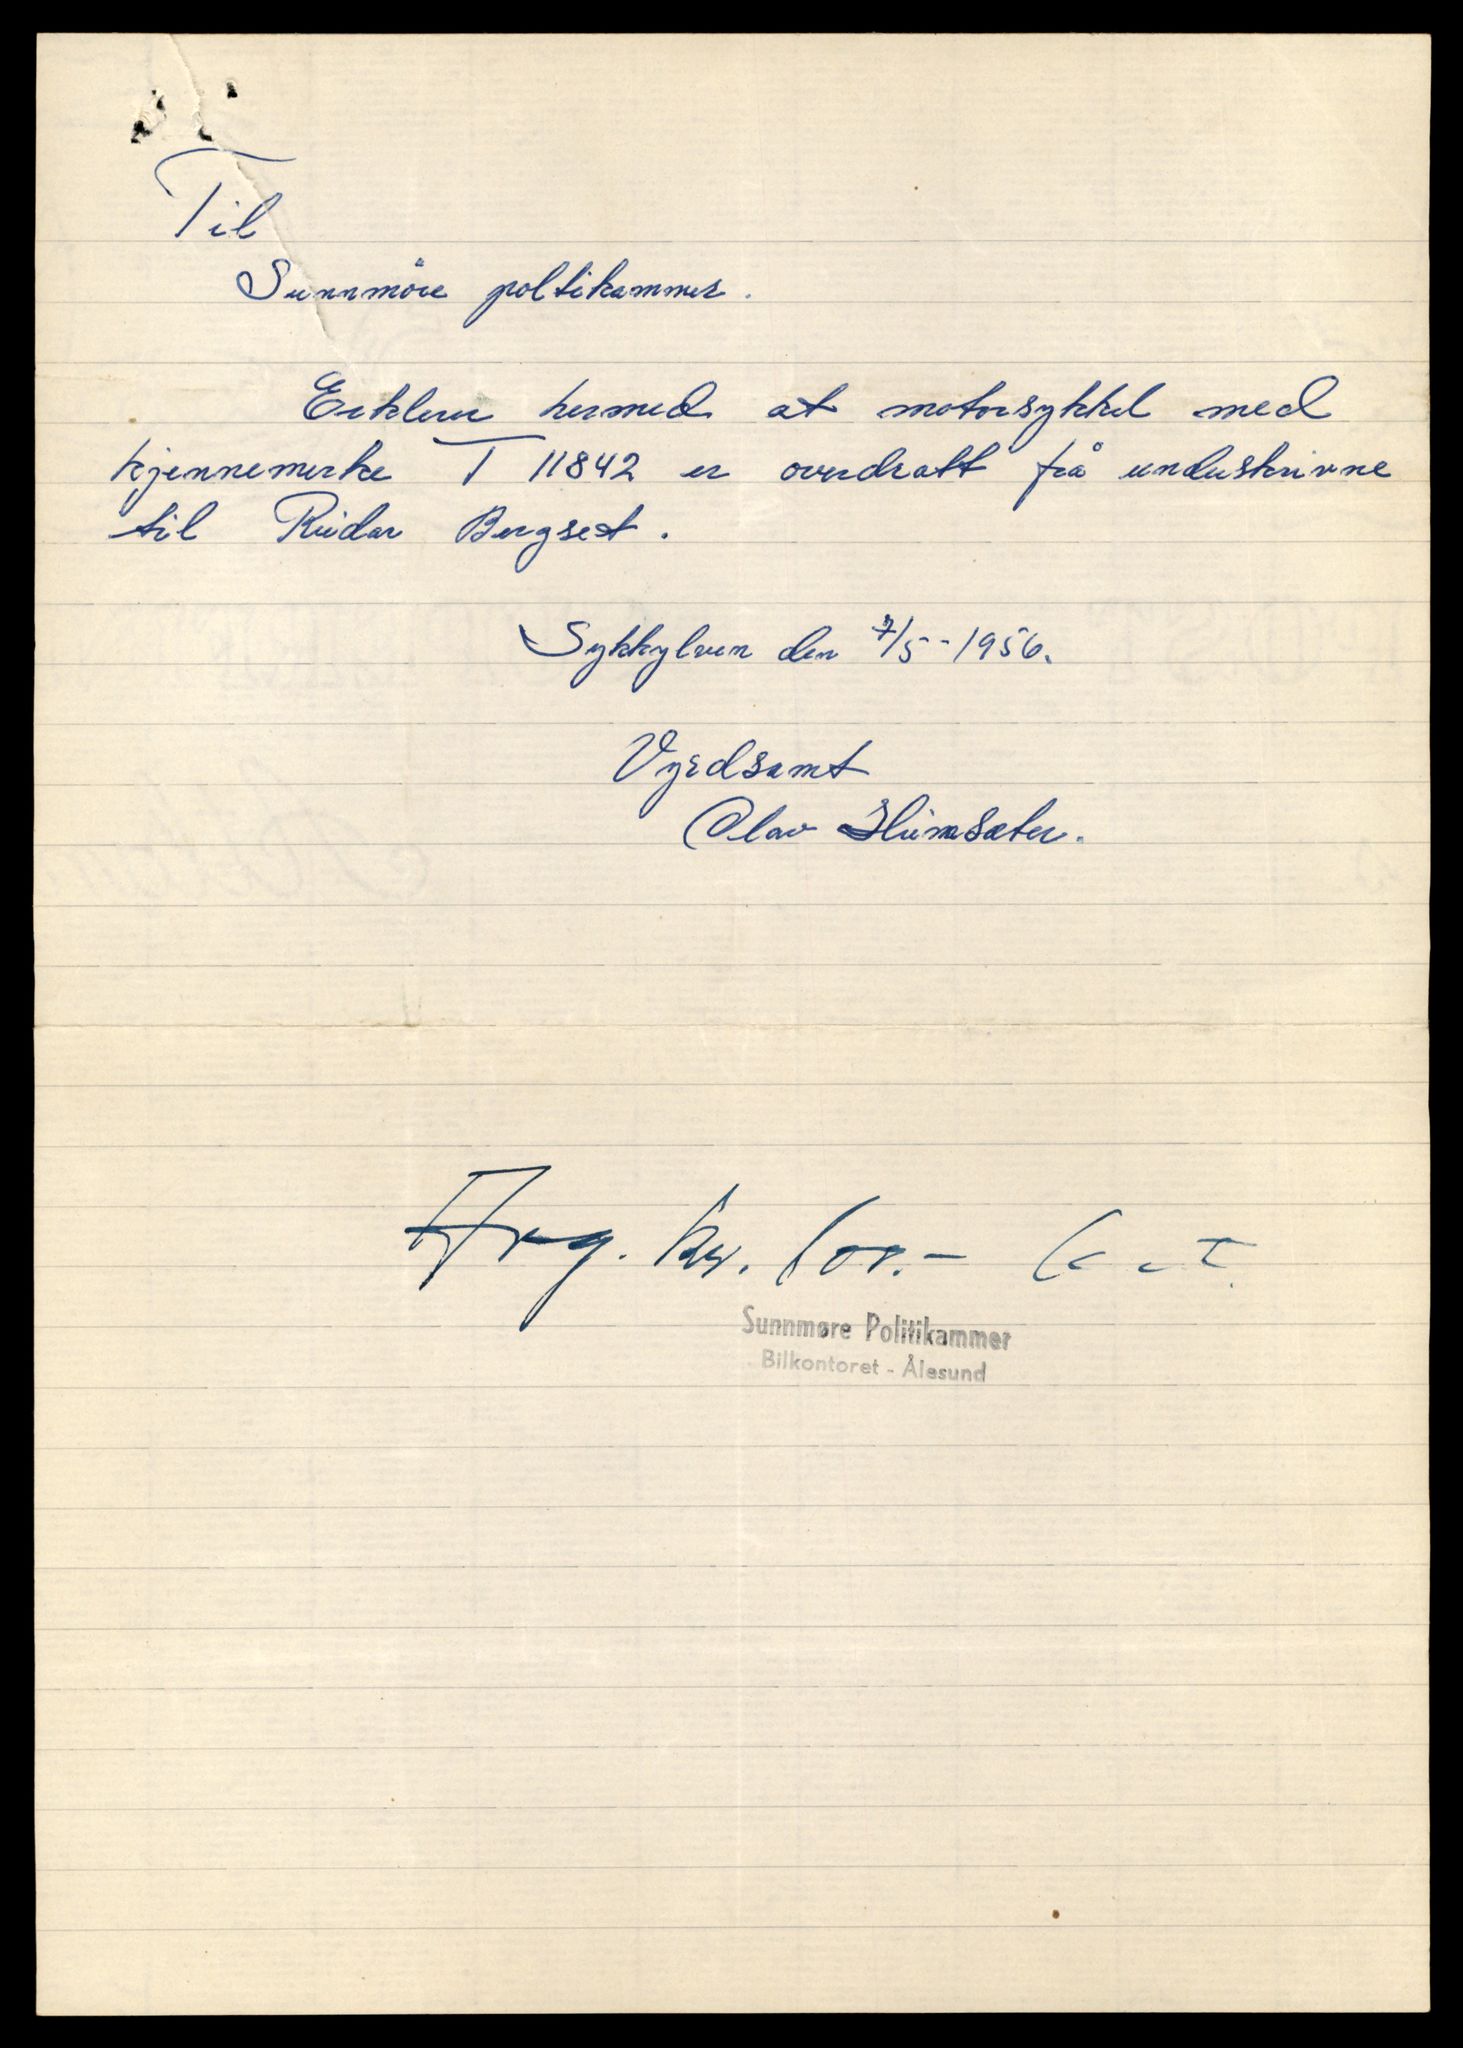 Til
Sunnmöre poltikammer.
Erklerer hermed at motorsykkel med
kjennemerke T 11842 er overdratt frå underskrivne
til Reidar Bergset.
Sykkylven den 7/5-1956.
Vyrdsamt
Olav
Avg. kr.
Sunnmøre Politikammer
Bilkontoret - Ålesund